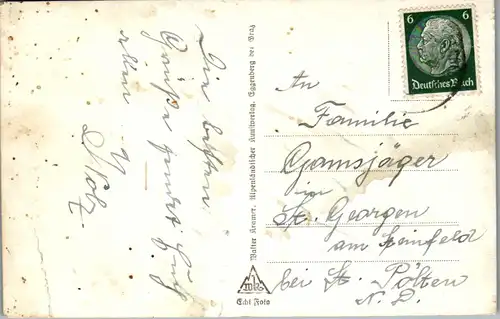 Die besten
Grüße sendet Euch
allen
6 6
Deutsches Reich
An
Familie
Gamsjäger
in
St. Georgen
am Steinfeld
bei St. Pölten
N. D.
Walter Kramer, Alpenländischer Kunstverlag, Eggenberg bei Graz
WK
Echt Foto